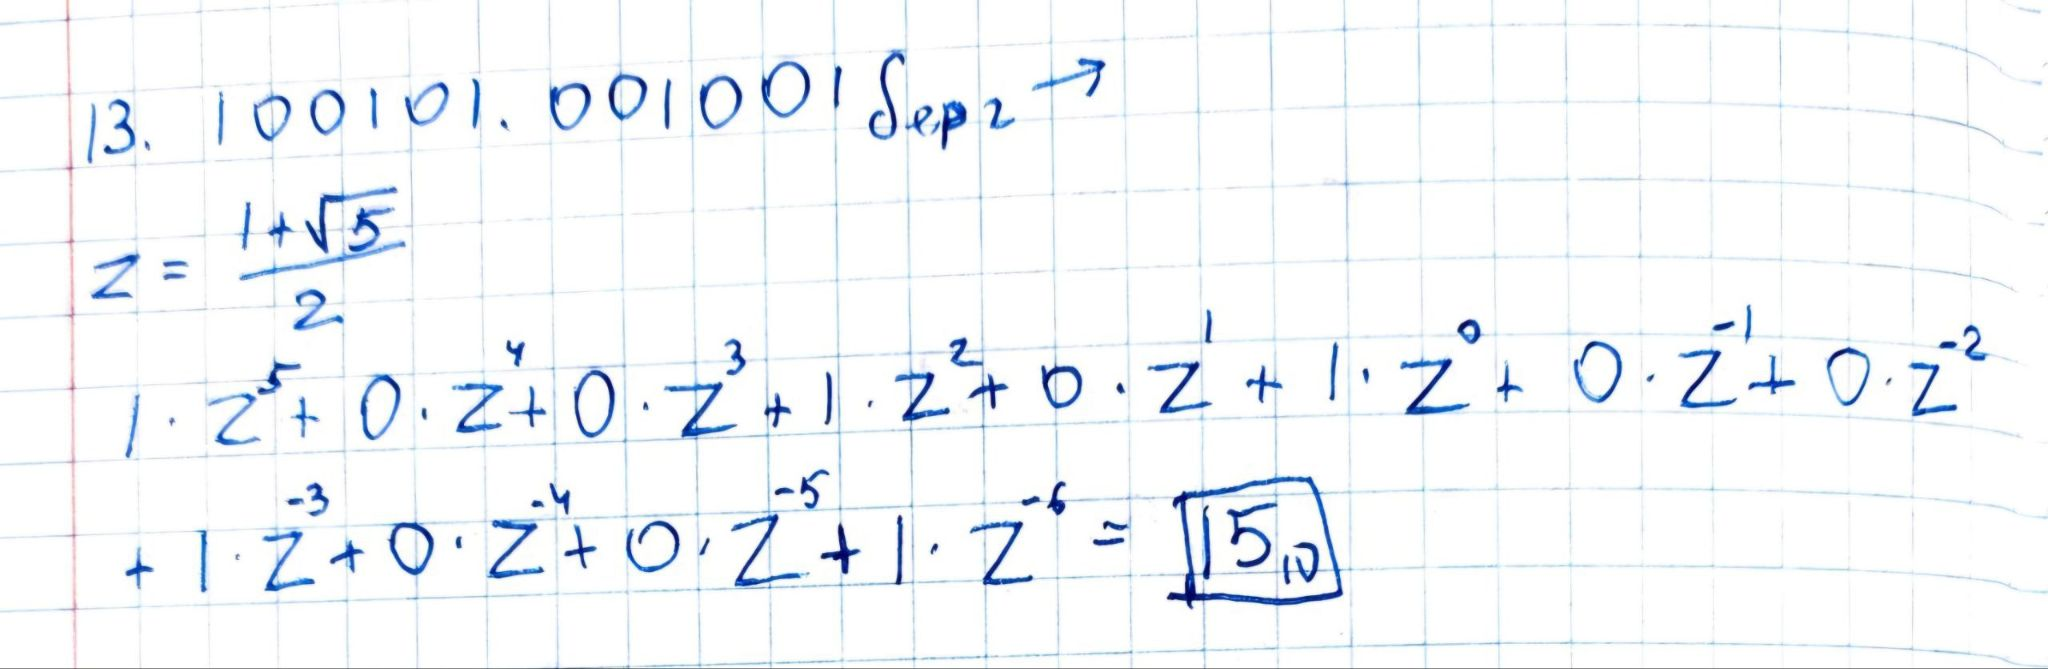 13. 100101.001001берг →
z = (1+√5)/2
1 · z⁵ + 0 · z⁴ + 0 · z³ + 1 · z² + 0 · z¹ + 1 · z⁰ + 0 · z⁻¹ + 0 · z⁻²
+ 1 · z⁻³ + 0 · z⁻⁴ + 0 · z⁻⁵ + 1 · z⁻⁶ = 15₁₀